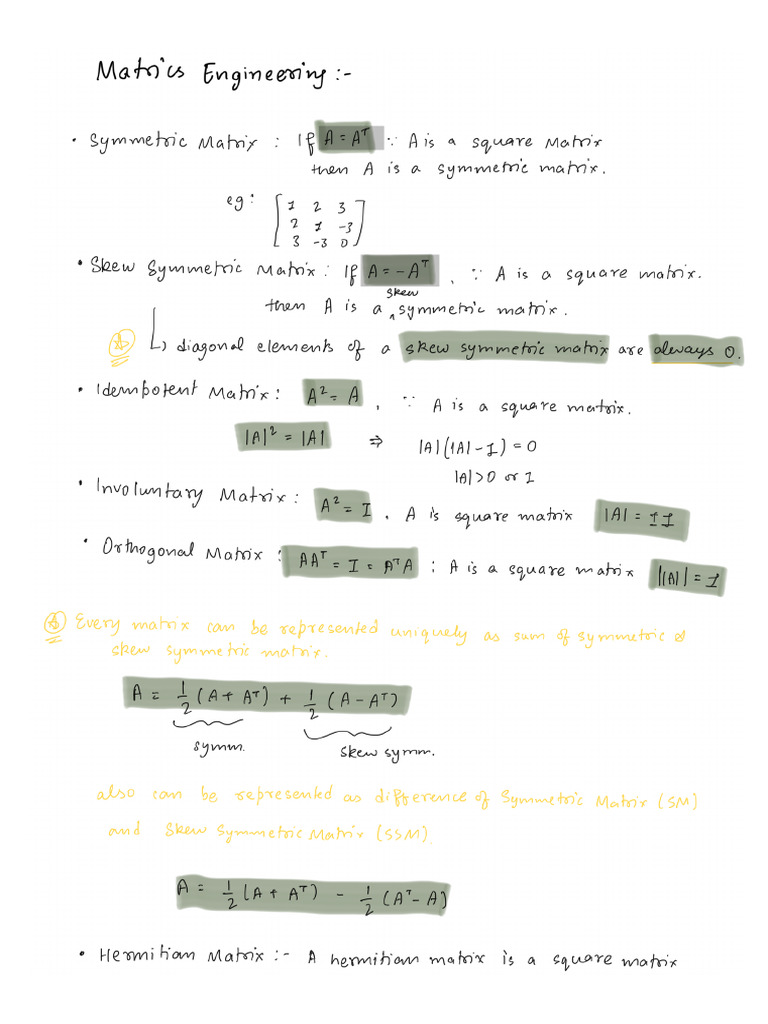 Matrics Engineering :-
• Symmetric Matrix : If A = Aᵀ ∵ A is a square matrix
then A is a symmetric matrix.
eg: [1 2 3
2 1 -3
3 -3 0]
• Skew Symmetric Matrix : If A = -Aᵀ , ∵ A is a square matrix.
then A is a skew symmetric matrix.
↳ diagonal elements of a skew symmetric matrix are always 0.
• Idempotent Matrix : A² = A , ∵ A is a square matrix.
|A|² = |A| ⇒ |A|(|A| - 1) = 0
|A| > 0 or 1
• Involuntary Matrix : A² = I . A is square matrix |A| = ±1
• Orthogonal Matrix : AAᵀ = I = AᵀA : A is a square matrix ||A|| = 1
Every matrix can be represented uniquely as sum of symmetric &
skew symmetric matrix.
A = 1/2 (A + Aᵀ) + 1/2 (A - Aᵀ)
symm. skew symm.
also can be represented as difference of Symmetric Matrix (SM)
and Skew Symmetric Matrix (SSM).
A = 1/2 (A + Aᵀ) - 1/2 (Aᵀ - A)
• Hermitian Matrix :- A hermitian matrix is a square matrix